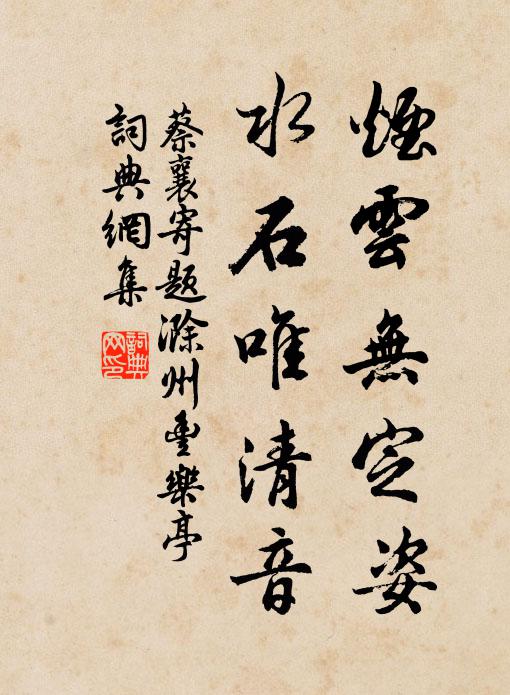 煙雲無定姿
水石唯清音
蔡襄寄題滁州豐樂亭
詞典網集
詞典網印